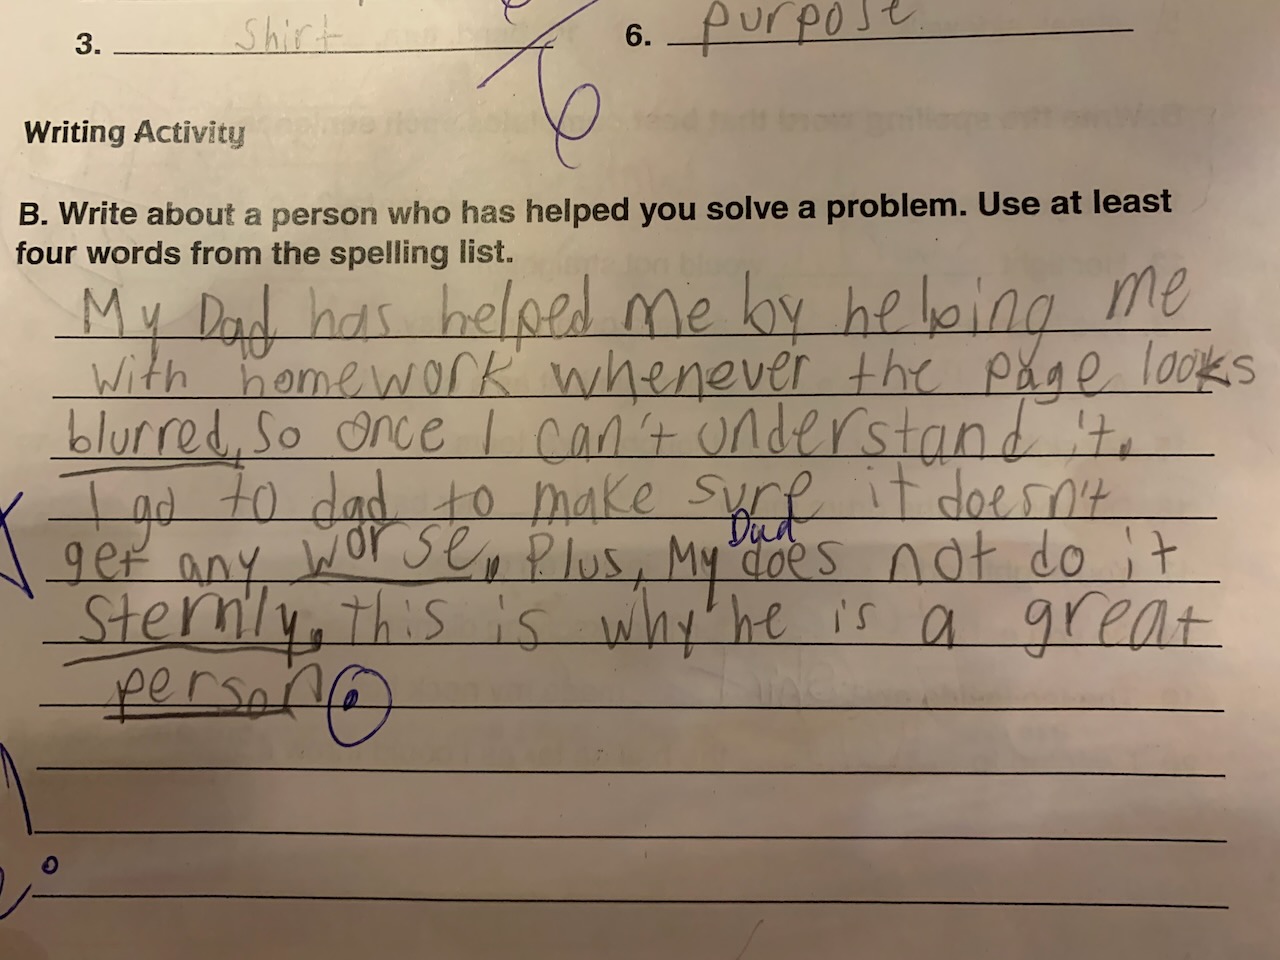 3. shirt 6. purpose
6
Writing Activity
B. Write about a person who has helped you solve a problem. Use at least
four words from the spelling list.
My Dad has helped me by helping me
with homework whenever the page looks
blurred, so once I can't understand it.
I go to dad to make sure it doesn't
get any worse. Plus, My Dad does not do it
sternly. this is why he is a great
person.